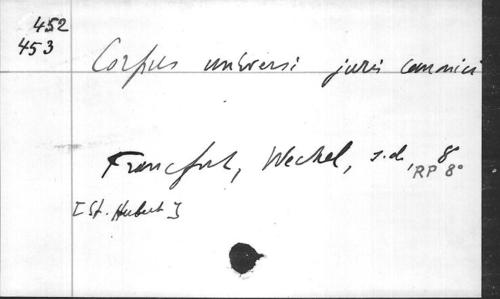 452
453
Corpus universi juris canonici
Francfort, Wechel, s.d., 8
RP 8°
[St. Hubert]